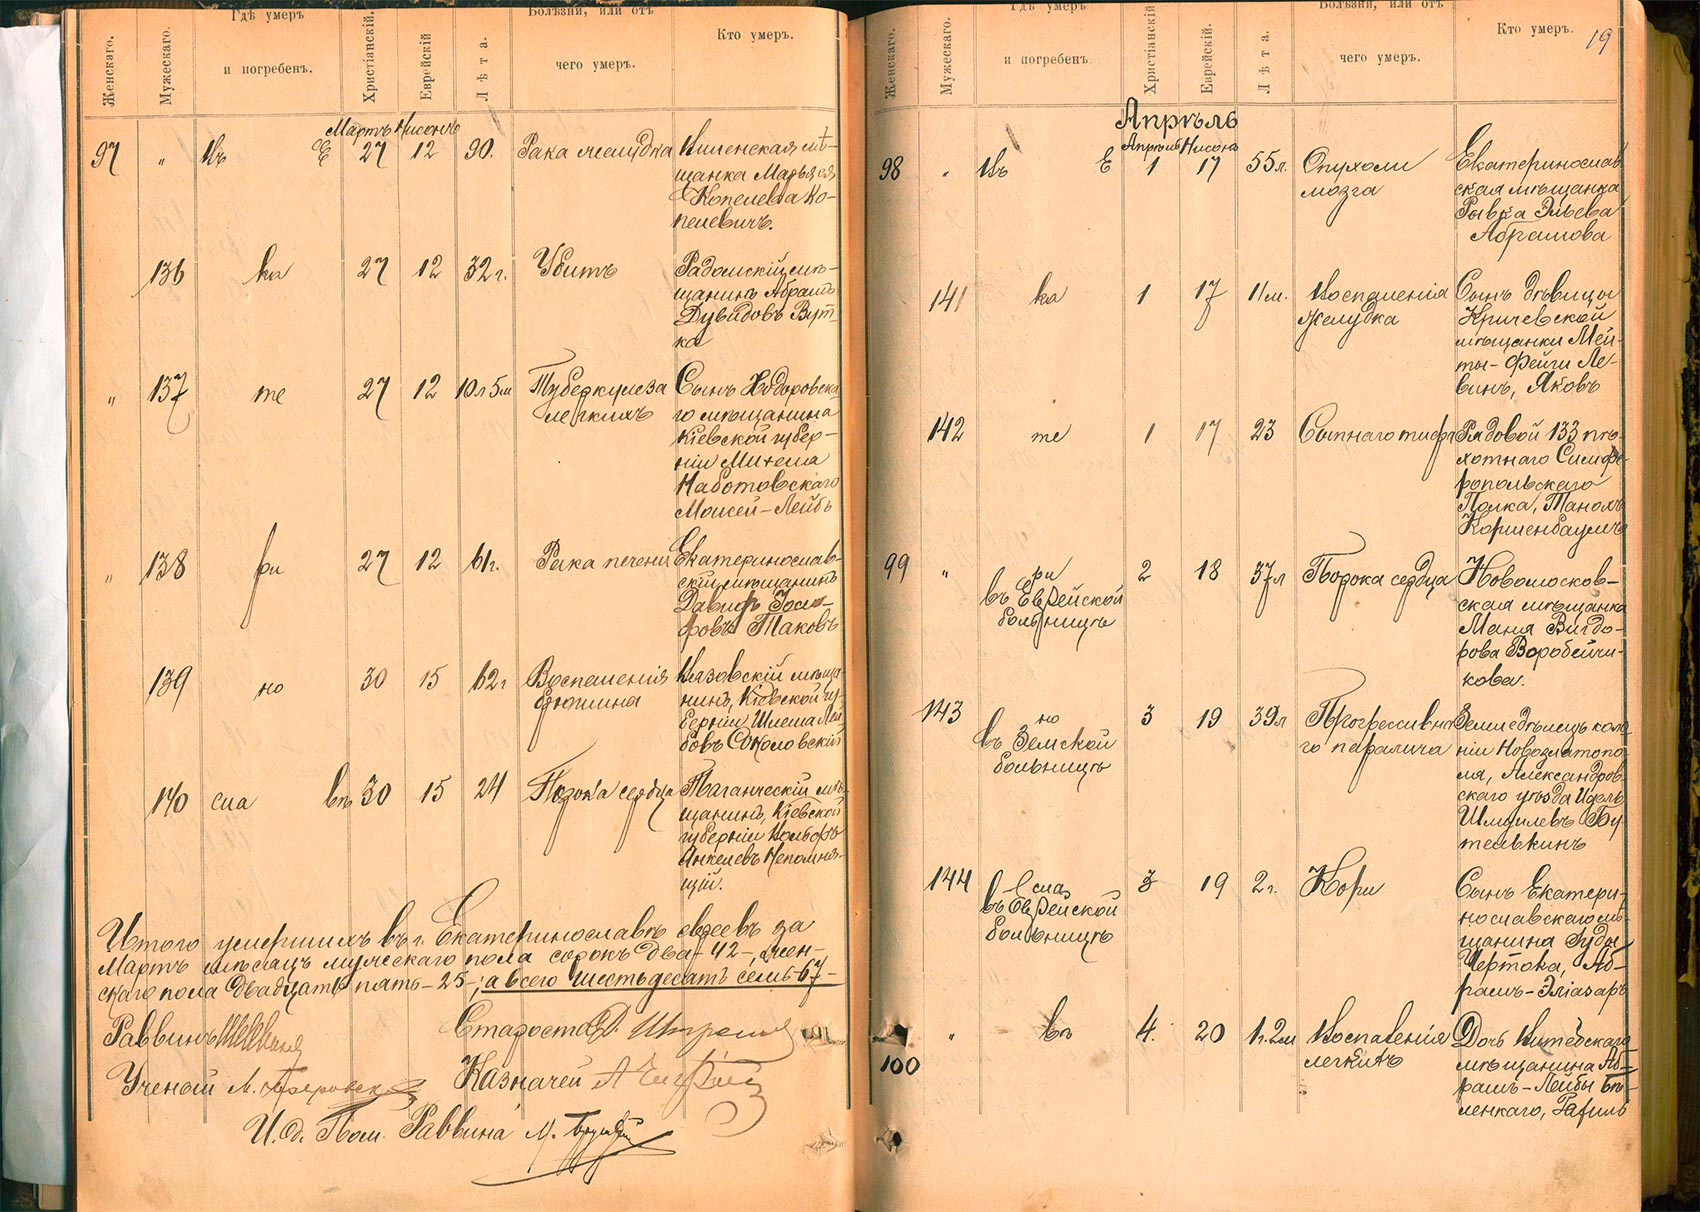 Женскаго.
Мужескаго.
Гдѣ умеръ
и погребенъ.
Христіанскій.
Еврейскій
Лѣта.
Болѣзни, или отъ
чего умеръ.
Кто умеръ.
Мартъ Нисонъ
97 " Въ Е 27 12 90. Рака желудка
мѣ-
щанка
Копелева Ко-
пелевичъ.
136 ка 27 12 32 г. Убитъ
Радомскій мѣ-
щанинъ Абрамъ
Дувидовъ Вут-
ка
" 137 те 27 12 10 л 5 м Туберкулеза
легкихъ
Сынъ Ходоровска-
го мѣщанина
Кіевской губер-
ніи Михеля
Наботовскаго
Моисей-Лейбъ
" 138 ри 27 12 61 г. Рака печени
Екатеринослав-
скій мѣщанинъ
Давидъ
Таковъ
139 но 30 15 62 г Воспаленія
брюшина
мѣща-
нинъ, Кіевской гу-
берніи Шлема Лей-
бовъ Соколовскій
140 сла въ 30 15 24 Порока сердца
Таганческій мѣ-
щанинъ, Кіевской
губерніи Вольфъ
Янкелевъ Непомня-
щій.
Итого умершихъ въ г. Екатеринославѣ евреевъ за
Мартъ мѣсяцъ мужескаго пола сорокъ два - 42 -, жен-
скаго пола двадцать пять - 25 -; а всего шестьдесятъ семь - 67 -
Раввинъ
Староста
Ученый
Казначей
И. д. Пом. Раввина
19
Женскаго.
Мужескаго.
Гдѣ умеръ
и погребенъ.
Христіанскій
Еврейскій.
Лѣта.
Болѣзни, или отъ
чего умеръ.
Кто умеръ.
Апрѣль
Апрѣль Нисонъ
98 " Въ Е 1 17 55 л. Опухоли
мозга
Екатеринослав
ская мѣщанка
Рывка Эльева
Абрамова
141 ка 1 17 11 м. Воспаленія
желудка
Сынъ дѣвицы
Кричевской
мѣщанки Мей-
ты-Фейги Ле-
винъ, Яковъ
142 те 1 17 23 Сыпнаго тифа
Рядовой 133 пѣ-
хотнаго Симфе-
ропольскаго
Полка, Танхомъ
Коршенбаумъ
99 " ри
въ Еврейской
больницѣ
2 18 37 л Порока сердца
Новомосков-
ская мѣщанка
Маня Вигдо-
рова Воробейчи-
кова.
143 но
въ Земской
больницѣ
3 19 39 л Прогрессивна
го паралича
Земледѣлецъ коло-
ніи Новозлатопо-
ля, Александров
скаго уѣзда Идель
Шмуилевъ Бу-
телькинъ
144 сла
въ Еврейской
больницѣ
3 19 2 г. Кори
Сынъ Екатери-
нославскаго мѣ-
щанина Іуды
Чертока, Аб-
рамъ-Эліазаръ
100 " въ 4. 20 1 г. 2 м Воспаленія
легкихъ
Дочь Витебскаго
мѣщанина Аб-
рамъ-Лейбы Бѣ-
ленкаго, Рахиль